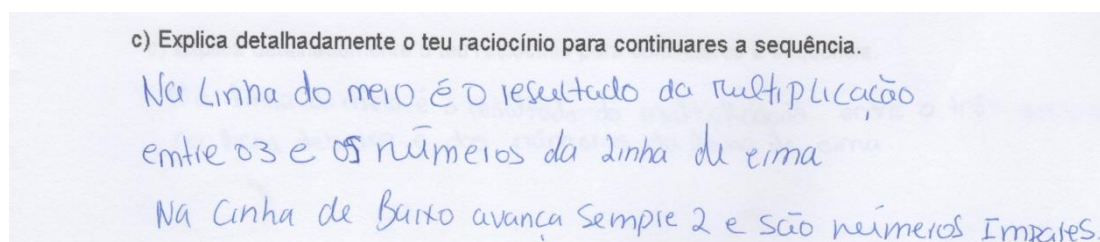 c) Explica detalhadamente o teu raciocínio para continuares a sequência.
Na Linha do meio é o resultado da multiplicação
emtre o 3 e os números da linha de cima
Na Linha de Baixo avança sempre 2 e são números Impares.